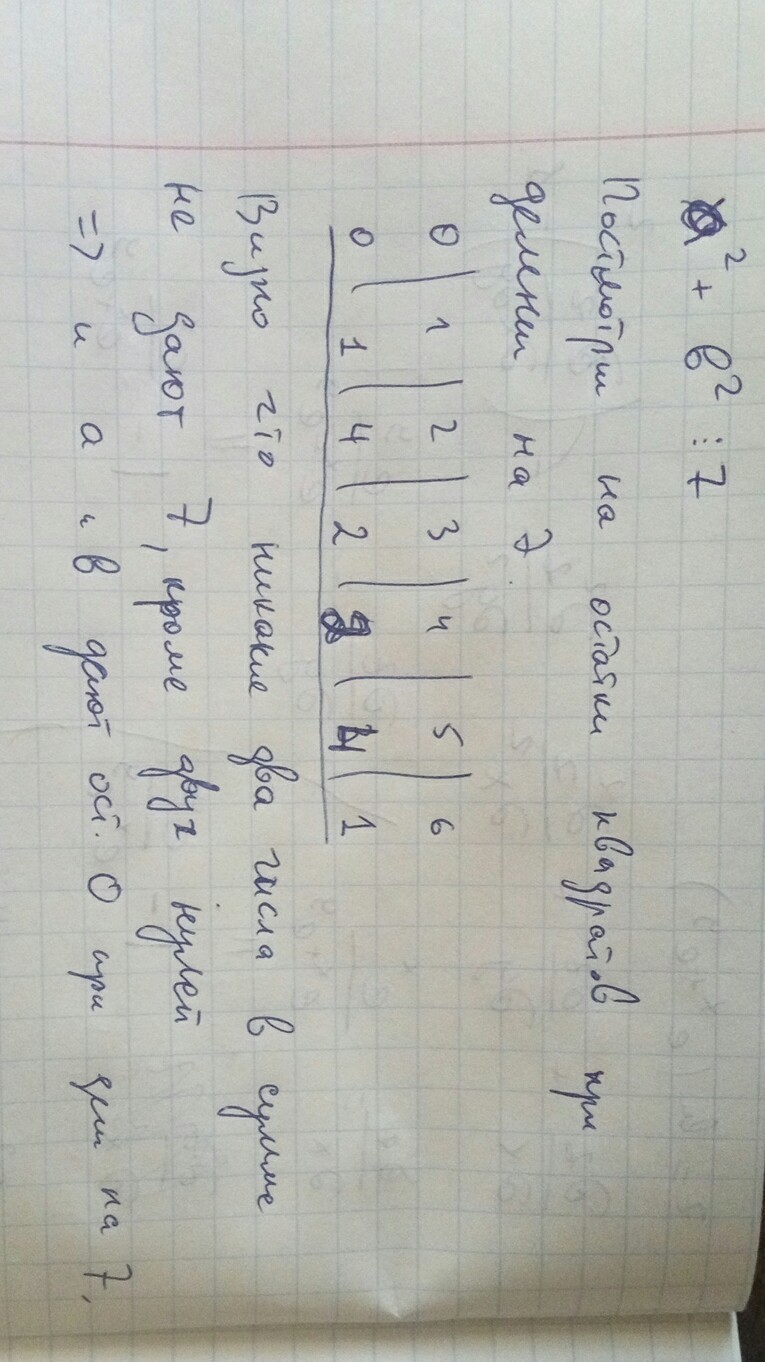 a² + b² ⋮ 7
Посмотрим на остатки квадратов при
делении на 7.
0 | 1 | 2 | 3 | 4 | 5 | 6
0 | 1 | 4 | 2 | 2 | 4 | 1
Видно что никакие два числа в сумме
не дают 7, кроме двух нулей
=> и a и b дают ост. 0 при дел на 7.